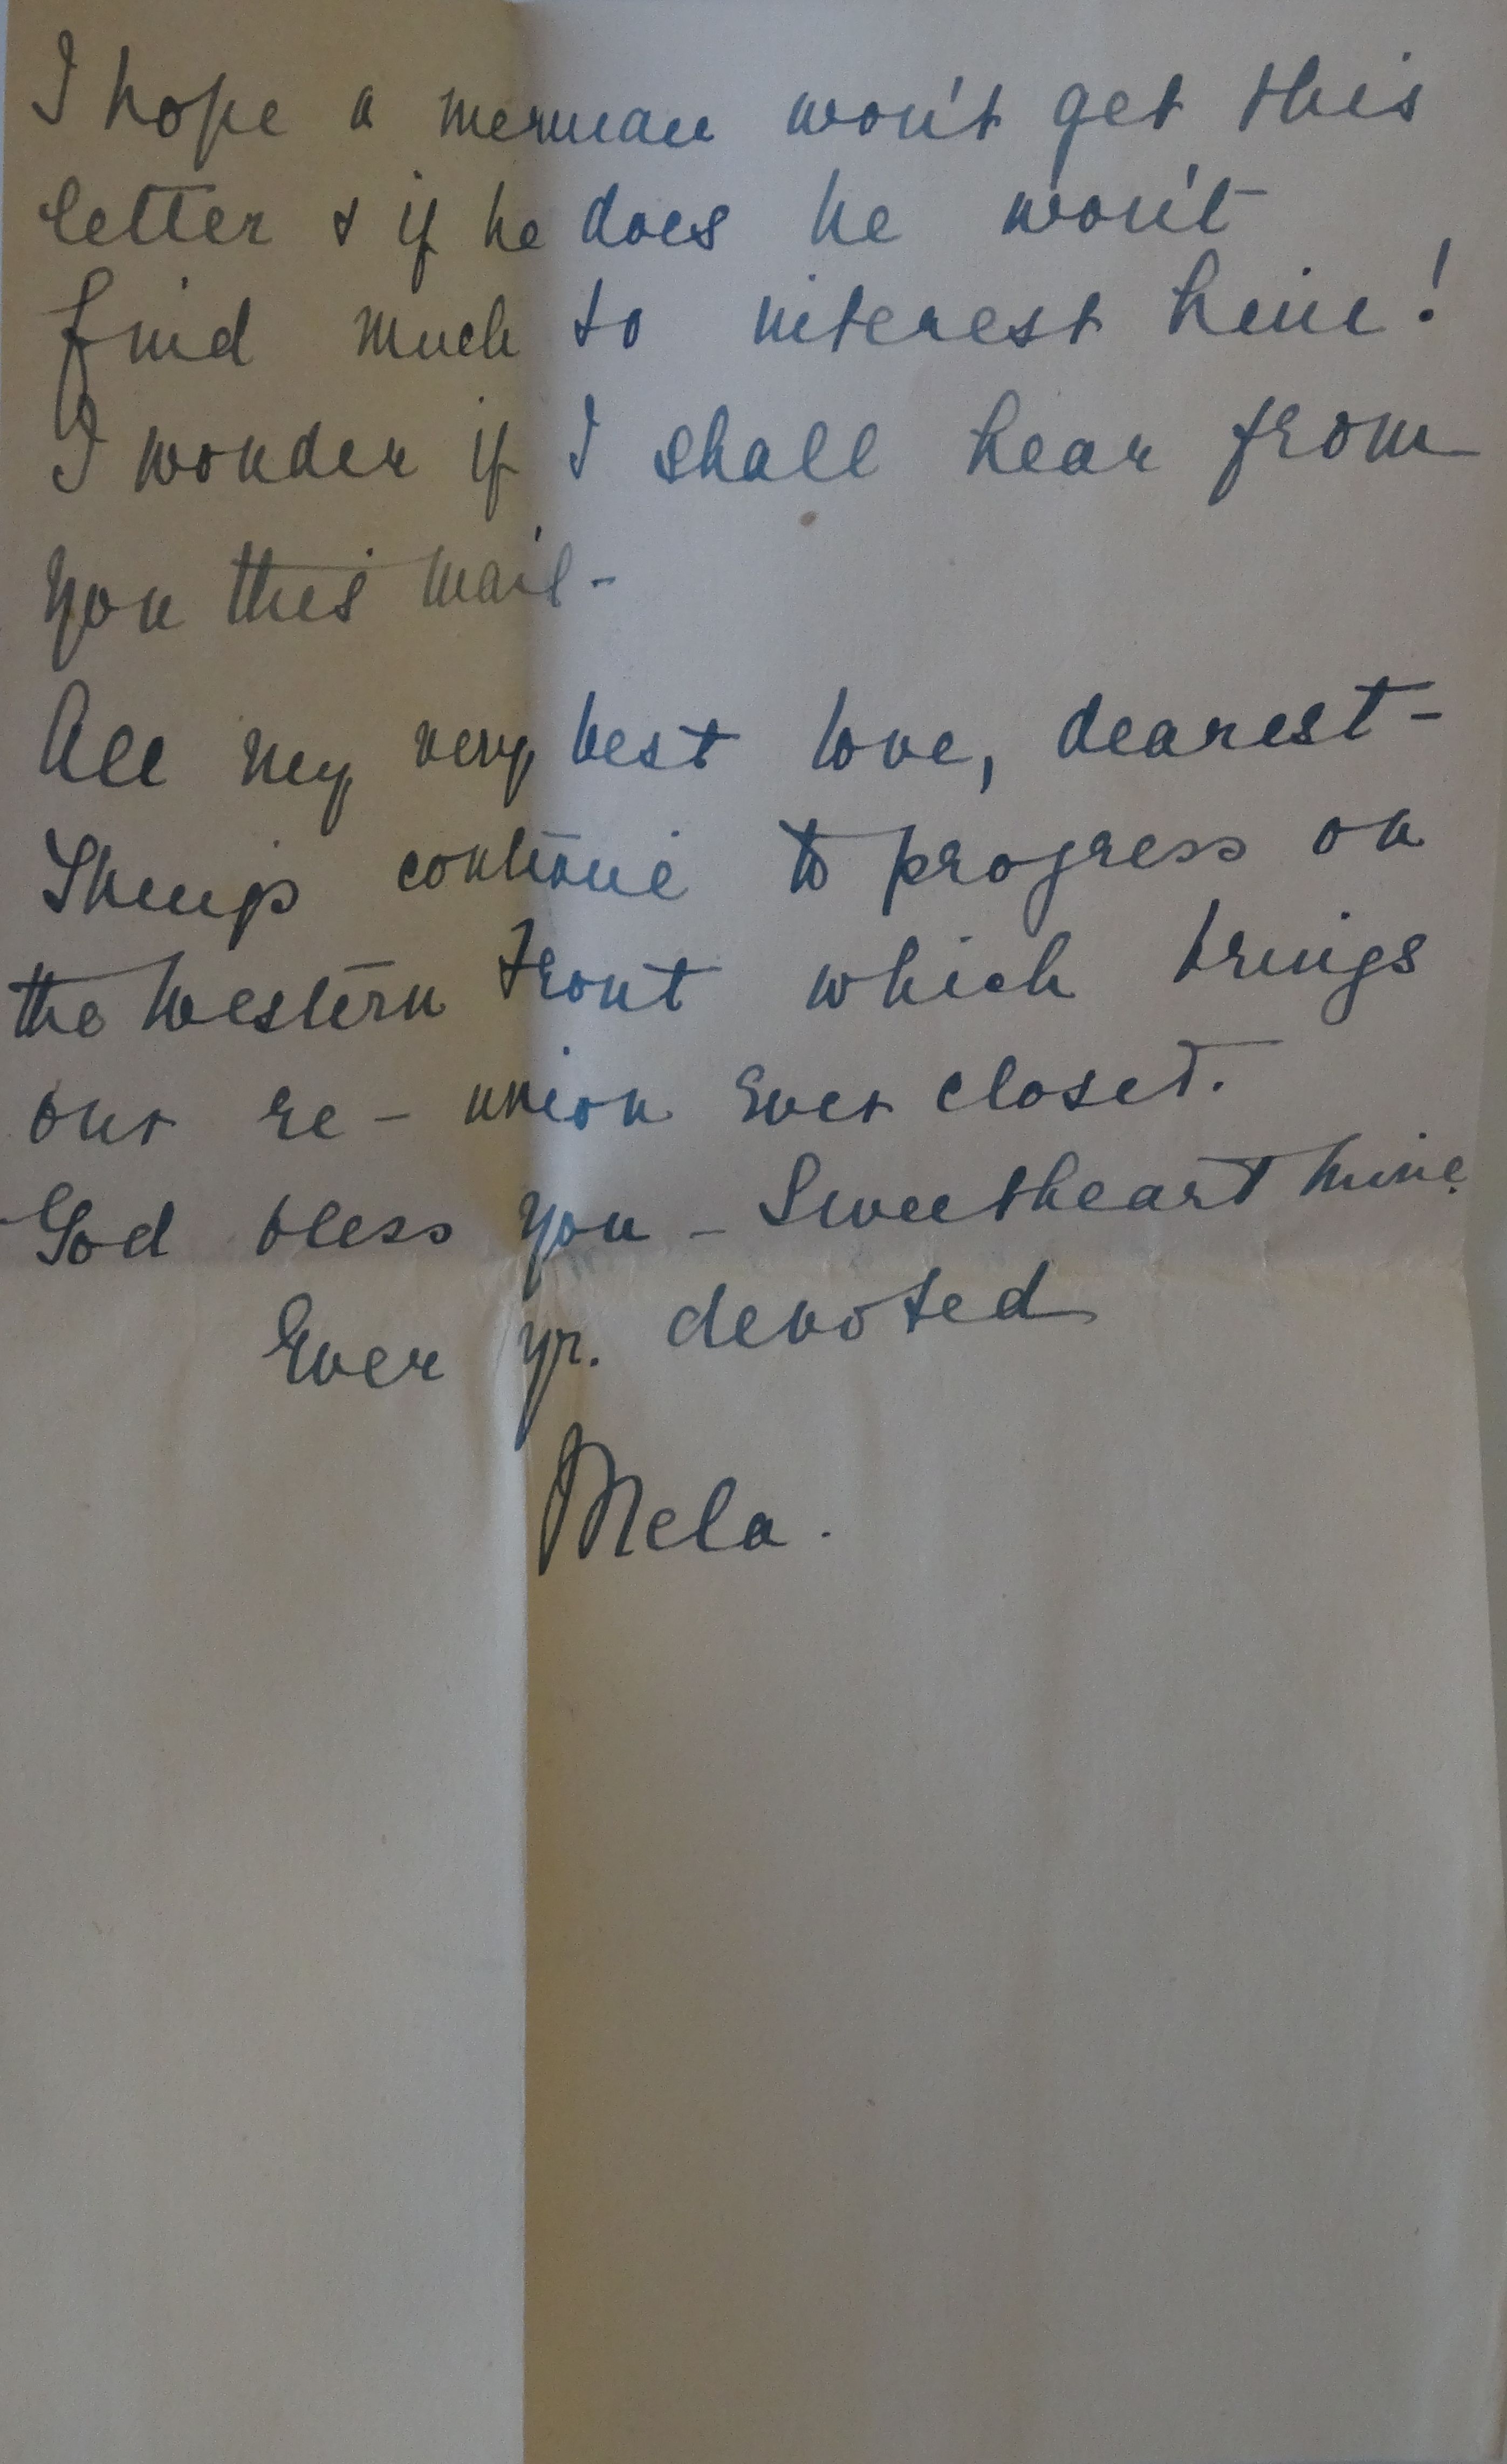 I hope a merman won't get this
letter & if he does he won't
find much to interest him!
I wonder if I shall hear from
you this mail -
All my very best love, dearest -
Things continue to progress on
the Western Front which brings
our re - union ever closer.
God bless you - Sweetheart mine
Ever yr. devoted
Mela.